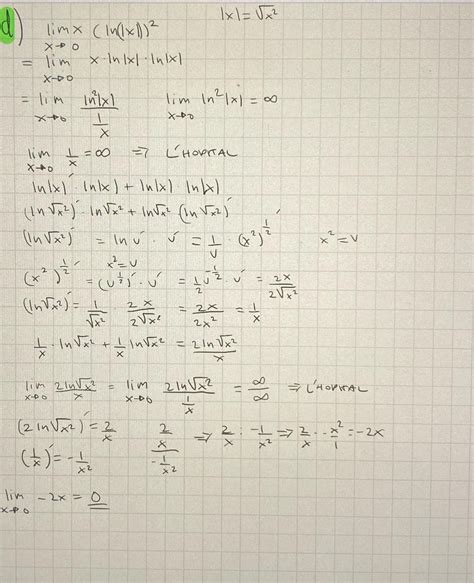 d) lim x→0 x (ln|x|)² |x| = √x²
= lim x→0 x · ln|x| · ln|x|
= lim x→0 ln²|x| / (1/x) lim x→0 ln²|x| = ∞
lim x→0 1/x = ∞ ⇒ L'HOPITAL
ln|x|´ · ln|x| + ln|x| · ln|x|´
(ln√x²)´ · ln√x² + ln√x² (ln√x²)´
(ln√x²)´ = ln v´ · v´ = 1/v · (x²)^½´ x² = v
(x²)^½´ x²=v = (v^½)´ · v´ = ½v^-½ · v´ = 2x / 2√x²
(ln√x²)´ = 1/√x² · 2x / 2√x² = 2x / 2x² = 1/x
1/x · ln√x² + 1/x ln√x² = 2ln√x² / x
lim x→0 2ln√x² / x = lim x→0 2ln√x² / (1/x) = ∞/∞ ⇒ L'HOPITAL
(2ln√x²)´ = 2/x (2/x) / (-1/x²) ⇒ 2/x : -1/x² ⇒ 2/x · -x²/1 = -2x
(1/x)´ = -1/x²
lim x→0 -2x = 0